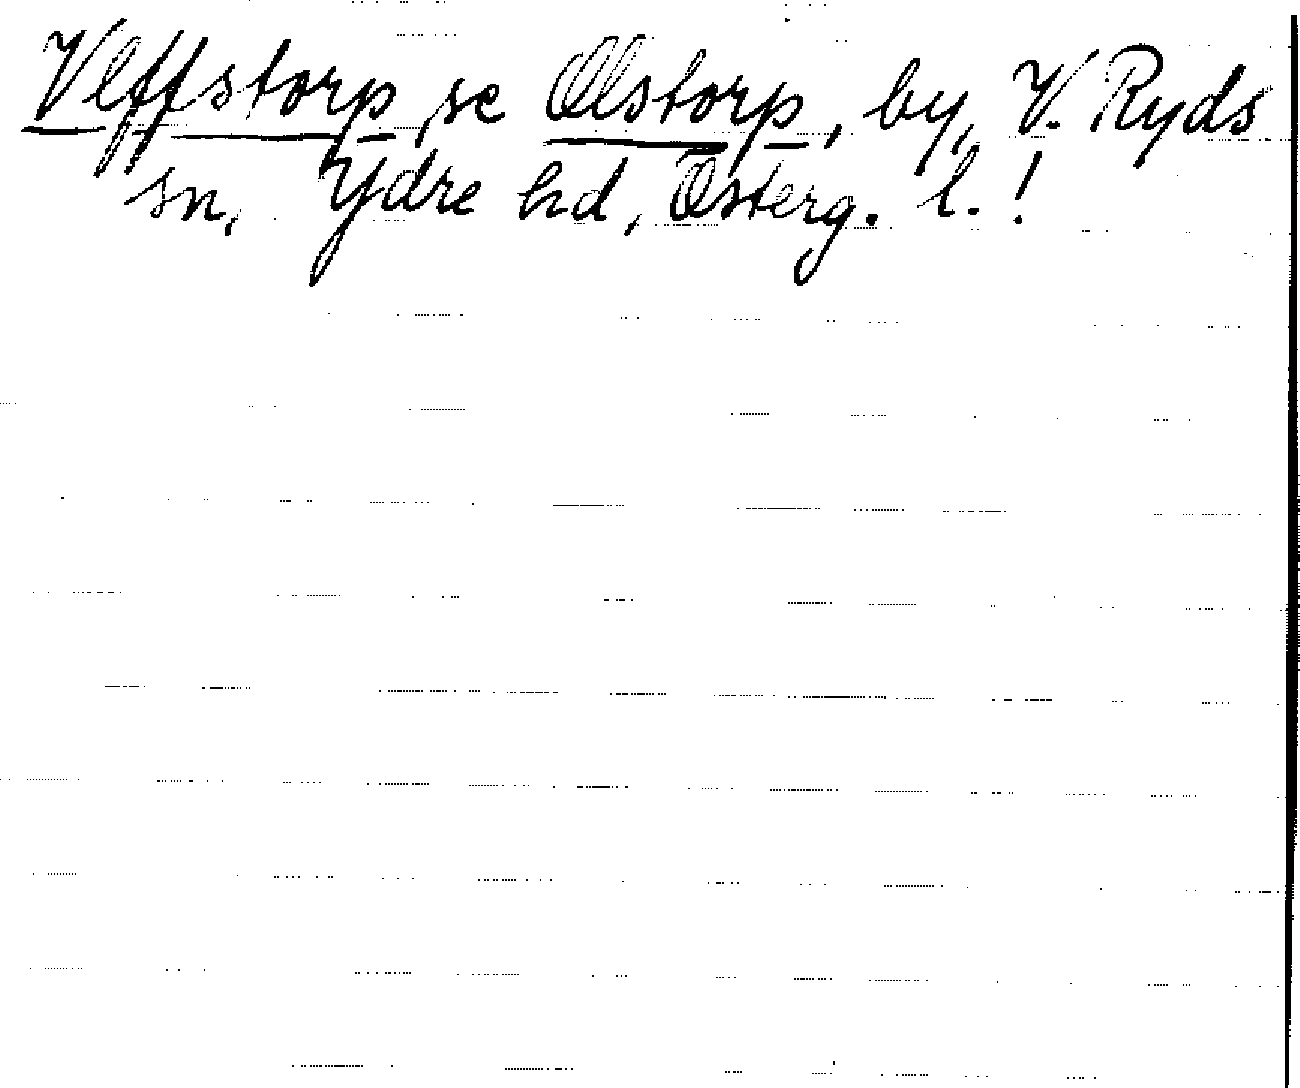 Vlffstorp, se Olstorp, by, V. Ryds
sn, Ydre hd, Österg. l.!